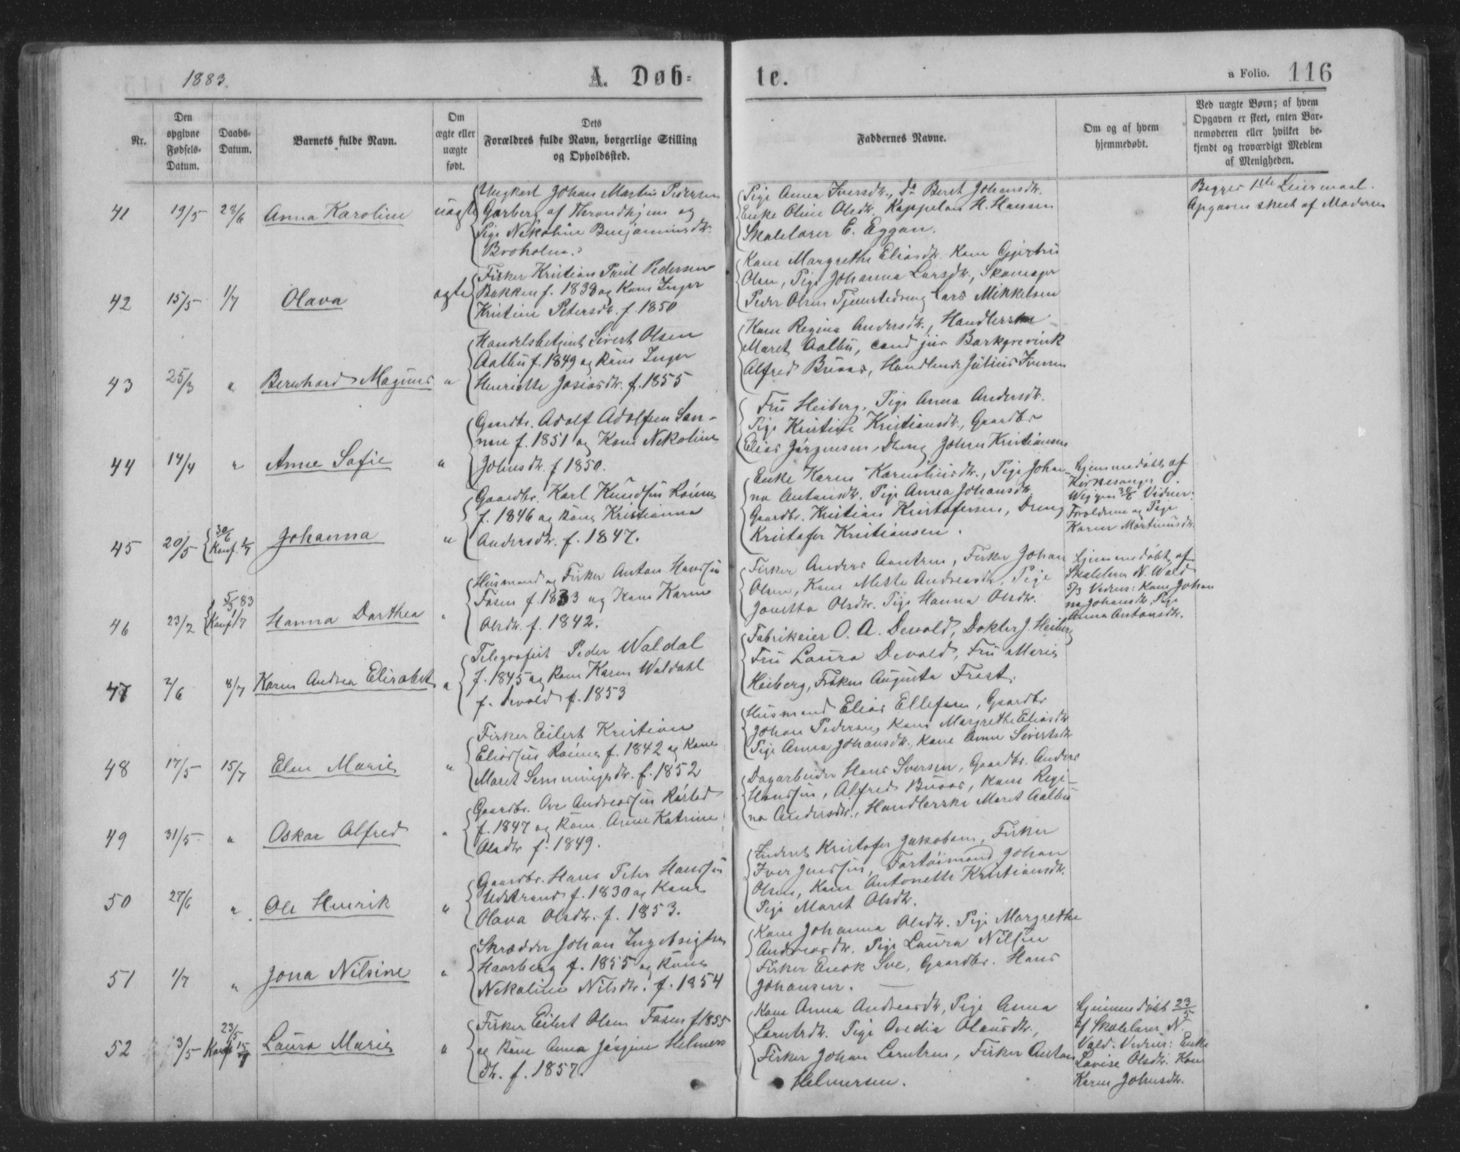 1883.
A. Døb-
te.
a Folio. 116
Nr.
Den opgivne Fødsels-Datum.
Daabs-Datum.
Barnets fulde Navn.
Om ægte eller uægte født.
Dets Forældres fulde Navn, borgerlige Stilling og Opholdssted.
Faddernes Navne.
Om og af hvem hjemmedøbt.
Ved uægte Børn; af hvem Opgaven er skeet, enten Barnemoderen eller hvilket bekjendt og troværdigt Medlem af Menigheden.
41 19/5 24/6 Anna Karoline uægte
Ungkarl Johan Martin Pedersen
Garberg af Throndhjem og
Pige Nekoline Benjaminsdtr.
Broholm.
Pige Anna Iversdtr., do Beret Johansdtr.
Enke Oline Olsdtr. Kappelan H. Hansen
Skolelærer E. Eggan.
Begges 1ste Leiermaal.
Opgaven skeet af Moderen
42 15/5 1/7 Olava ægte
Fisker Kristian Paul Pedersen
Bakken f. 1838 og Kone Inger
Kristine Petersdtr. f. 1850
Kone Margrethe Eliasdtr. Kone Gjertru
Olsen, Pige Johanna Larsdtr., Skomager
Peder Olsen Tjenestedreng Lars Mikkelsen
43 25/3 " Bernhard Magnus "
Handelsbetjent Sivert Olsen
Aalbu f. 1849 og Kone Inger
Henriette Josiasdtr. f. 1855
Kone Regina Andersdtr., Handlerske
Maret Aalbu, cand jur Barkgrevink
Alfred Buaas, Handlende Julius Iversen
44 14/4 " Anne Sofie "
Gaardbr. Adolf Adolfsen San-
f. 1851 og Kone Nekoline
Johnsdtr. f. 1850.
Fru Heiberg, Pige Anna Andersdtr.
Pige Kristine Kristiansdtr., Gaardbr
Elias Jørgensen, Dreng Johan Kristiansen
45 20/5 { 30/6 Konf 1/7 Johanna "
Gaardbr. Karl Knudsen
f. 1846 og Kone Kristianna
Andersdtr. f. 1847.
Enke Karen Kornelius dtr., Pige Johan-
na Antonsdtr. Pige Anna Johansdtr.
Gaardbr. Kristian Kristofersen, Dreng
Kristofer Kristiansen.
Hjemmedøbt af
Kirkesanger
Vidner:
Forældrene og Pige
Karen Martinusdtr.
46 23/2 { 5/3 83 Konf 1/7 Hanna Dorthea "
Husmand og Fisker Anton Hansen
Fosen f. 1833 og Kone Karen
Olsdtr. f. 1842.
Fisker Anders Arntsen, Fisker Johan
Olsen, Kone Mette Andreasdtr., Pige
Jonetta Olsdtr. Pige Hanna Olsdtr.
Hjemmedøbt af
Skolelærer N. Wald
5/3 Vidner: Kone Johan-
na Johansdtr. Pige
Anna Antonsdtr.
47 2/6 8/7 Karen Andrea Elisabet "
Telegrafist Peder Waldal
f. 1845 og Kone Karen Waldahl
f. Devold f. 1853
Fabrikeier O. A. Devold, Doktor J. Heiberg
Fru Laura Devold, Fru Maria
Heiberg, Frøken Augusta Frost.
48 17/5 15/7 Elen Marie "
Fisker Eilert Kristian
Eliassen f. 1842 og Kone
Maret Semmingsdtr. f. 1852
Husmand Elias Ellefsen, Gaardbr
Johan Pedersen, Kone Margrethe Eliasdtr
Pige Anna Johansdtr., Kone Anne Sivertsdtr
49 31/5 " Oskar Alfred "
Gaardbr. Ove Andreassen
f. 1847 og Kone Anne Katrine
Olsdtr f. 1849.
Dagarbeider Hans Iversen, Gaardbr. Anders
Hansen, Alfred Buaas, Kone Regi-
na Andersdtr., Handlerske Maret Aalbu
50 27/6 " Ole Henrik "
Gaardbr. Hans Peter Hansen
f. 1830 og Kone
Olava Olsdtr. f. 1853.
Kristofer Jakobsen, Fisker
Iver Johan
Olsen, Kone Antonette Kristiansdtr.
Pige Maret Olsdtr.
51 1/7 " Jona Nilsine "
Skrædder Johan Ingebrigtsen
Haarberg f. 1855 og Kone
Nekoline Nilsdtr. f. 1854
Kone Johanna Olsdtr. Pige Margrethe
Andreasdtr. Pige Laura Nilsen
Fisker Enok Gaardbr. Hans
Johansen.
52 3/5 23/5 Konf 15/7 Laura Marie "
Fisker Eilert Olsen Fosen f 1855
og Kone Anna Helmers-
dtr. f. 1857.
Kone Anna Andreasdtr, Pige Anna
Larntsdtr. Pige Ovedia Olausdtr,
Fisker Johan Larntsen, Fisker Anton
Helmersen.
Hjemmedøbt 23/5
af Skolelærer N
Vald. Vidner: Enke
Lovise Olsdtr. Kone
Karen Johnsdtr.